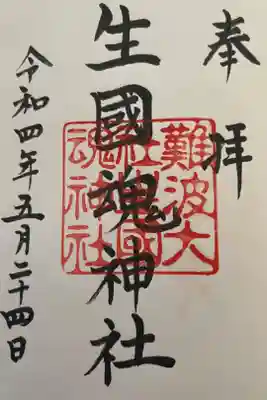 奉拝
生國魂神社
難波大
社生國
魂神社
令和四年五月二十四日